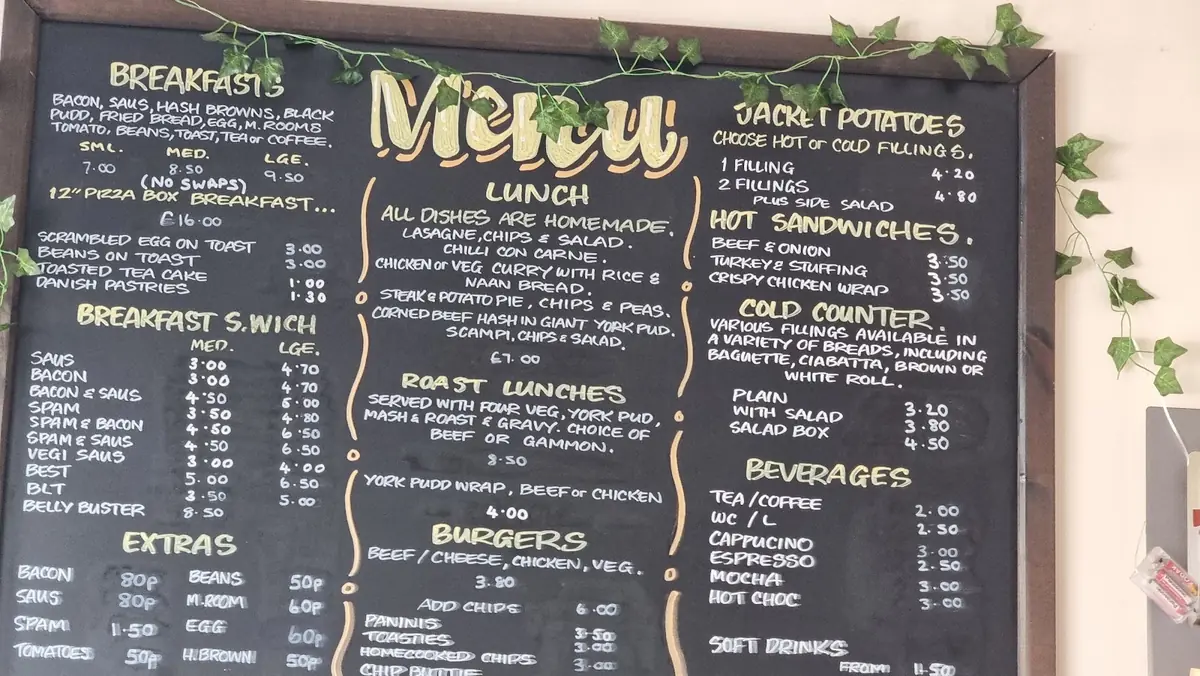 BREAKFASTS
BACON, SAUS, HASH BROWNS, BLACK
PUDD, FRIED BREAD, EGG, M.ROOMS
TOMATO, BEANS, TOAST, TEA or COFFEE.
SML. MED. LGE.
7.00 8.50 9.50
(NO SWAPS)
12" PIZZA BOX BREAKFAST...
£16.00
SCRAMBLED EGG ON TOAST 3.00
BEANS ON TOAST 3.00
TOASTED TEA CAKE 1.00
DANISH PASTRIES 1.30
BREAKFAST S.WICH
MED. LGE.
SAUS 3.00 4.70
BACON 3.00 4.70
BACON & SAUS 4.50 5.00
SPAM 3.50 4.80
SPAM & BACON 4.50 6.50
SPAM & SAUS 4.50 6.50
VEGI SAUS 3.00 4.00
BEST 5.00 6.50
BLT 3.50 5.00
BELLY BUSTER 8.50
EXTRAS
BACON 80p BEANS 50p
SAUS 80p M.ROOM 60p
SPAM 1.50 EGG 60p
TOMATOES 50p H.BROWN 50p
Menu
LUNCH
ALL DISHES ARE HOMEMADE.
LASAGNE, CHIPS & SALAD.
CHILLI CON CARNE.
CHICKEN or VEG CURRY WITH RICE &
NAAN BREAD.
STEAK & POTATO PIE, CHIPS & PEAS.
CORNED BEEF HASH IN GIANT YORK PUD.
SCAMPI, CHIPS & SALAD.
£7.00
ROAST LUNCHES
SERVED WITH FOUR VEG, YORK PUD,
MASH & ROAST & GRAVY. CHOICE OF
BEEF OR GAMMON.
8.50
YORK PUDD WRAP, BEEF or CHICKEN
4.00
BURGERS
BEEF / CHEESE, CHICKEN, VEG.
3.80
ADD CHIPS 6.00
PANINIS 3.50
TOASTIES 3.00
HOMECOOKED CHIPS 3.00
CHIP BUTTIE
JACKET POTATOES
CHOOSE HOT or COLD FILLINGS.
1 FILLING 4.20
2 FILLINGS 4.80
PLUS SIDE SALAD
HOT SANDWICHES.
BEEF & ONION 3.50
TURKEY & STUFFING 3.50
CRISPY CHICKEN WRAP 3.50
COLD COUNTER.
VARIOUS FILLINGS AVAILABLE IN
A VARIETY OF BREADS, INCLUDING
BAGUETTE, CIABATTA, BROWN OR
WHITE ROLL.
PLAIN 3.20
WITH SALAD 3.80
SALAD BOX 4.50
BEVERAGES
TEA / COFFEE 2.00
WC / L 2.50
CAPPUCINO 3.00
ESPRESSO 2.50
MOCHA 3.00
HOT CHOC 3.00
SOFT DRINKS
FROM 1.50